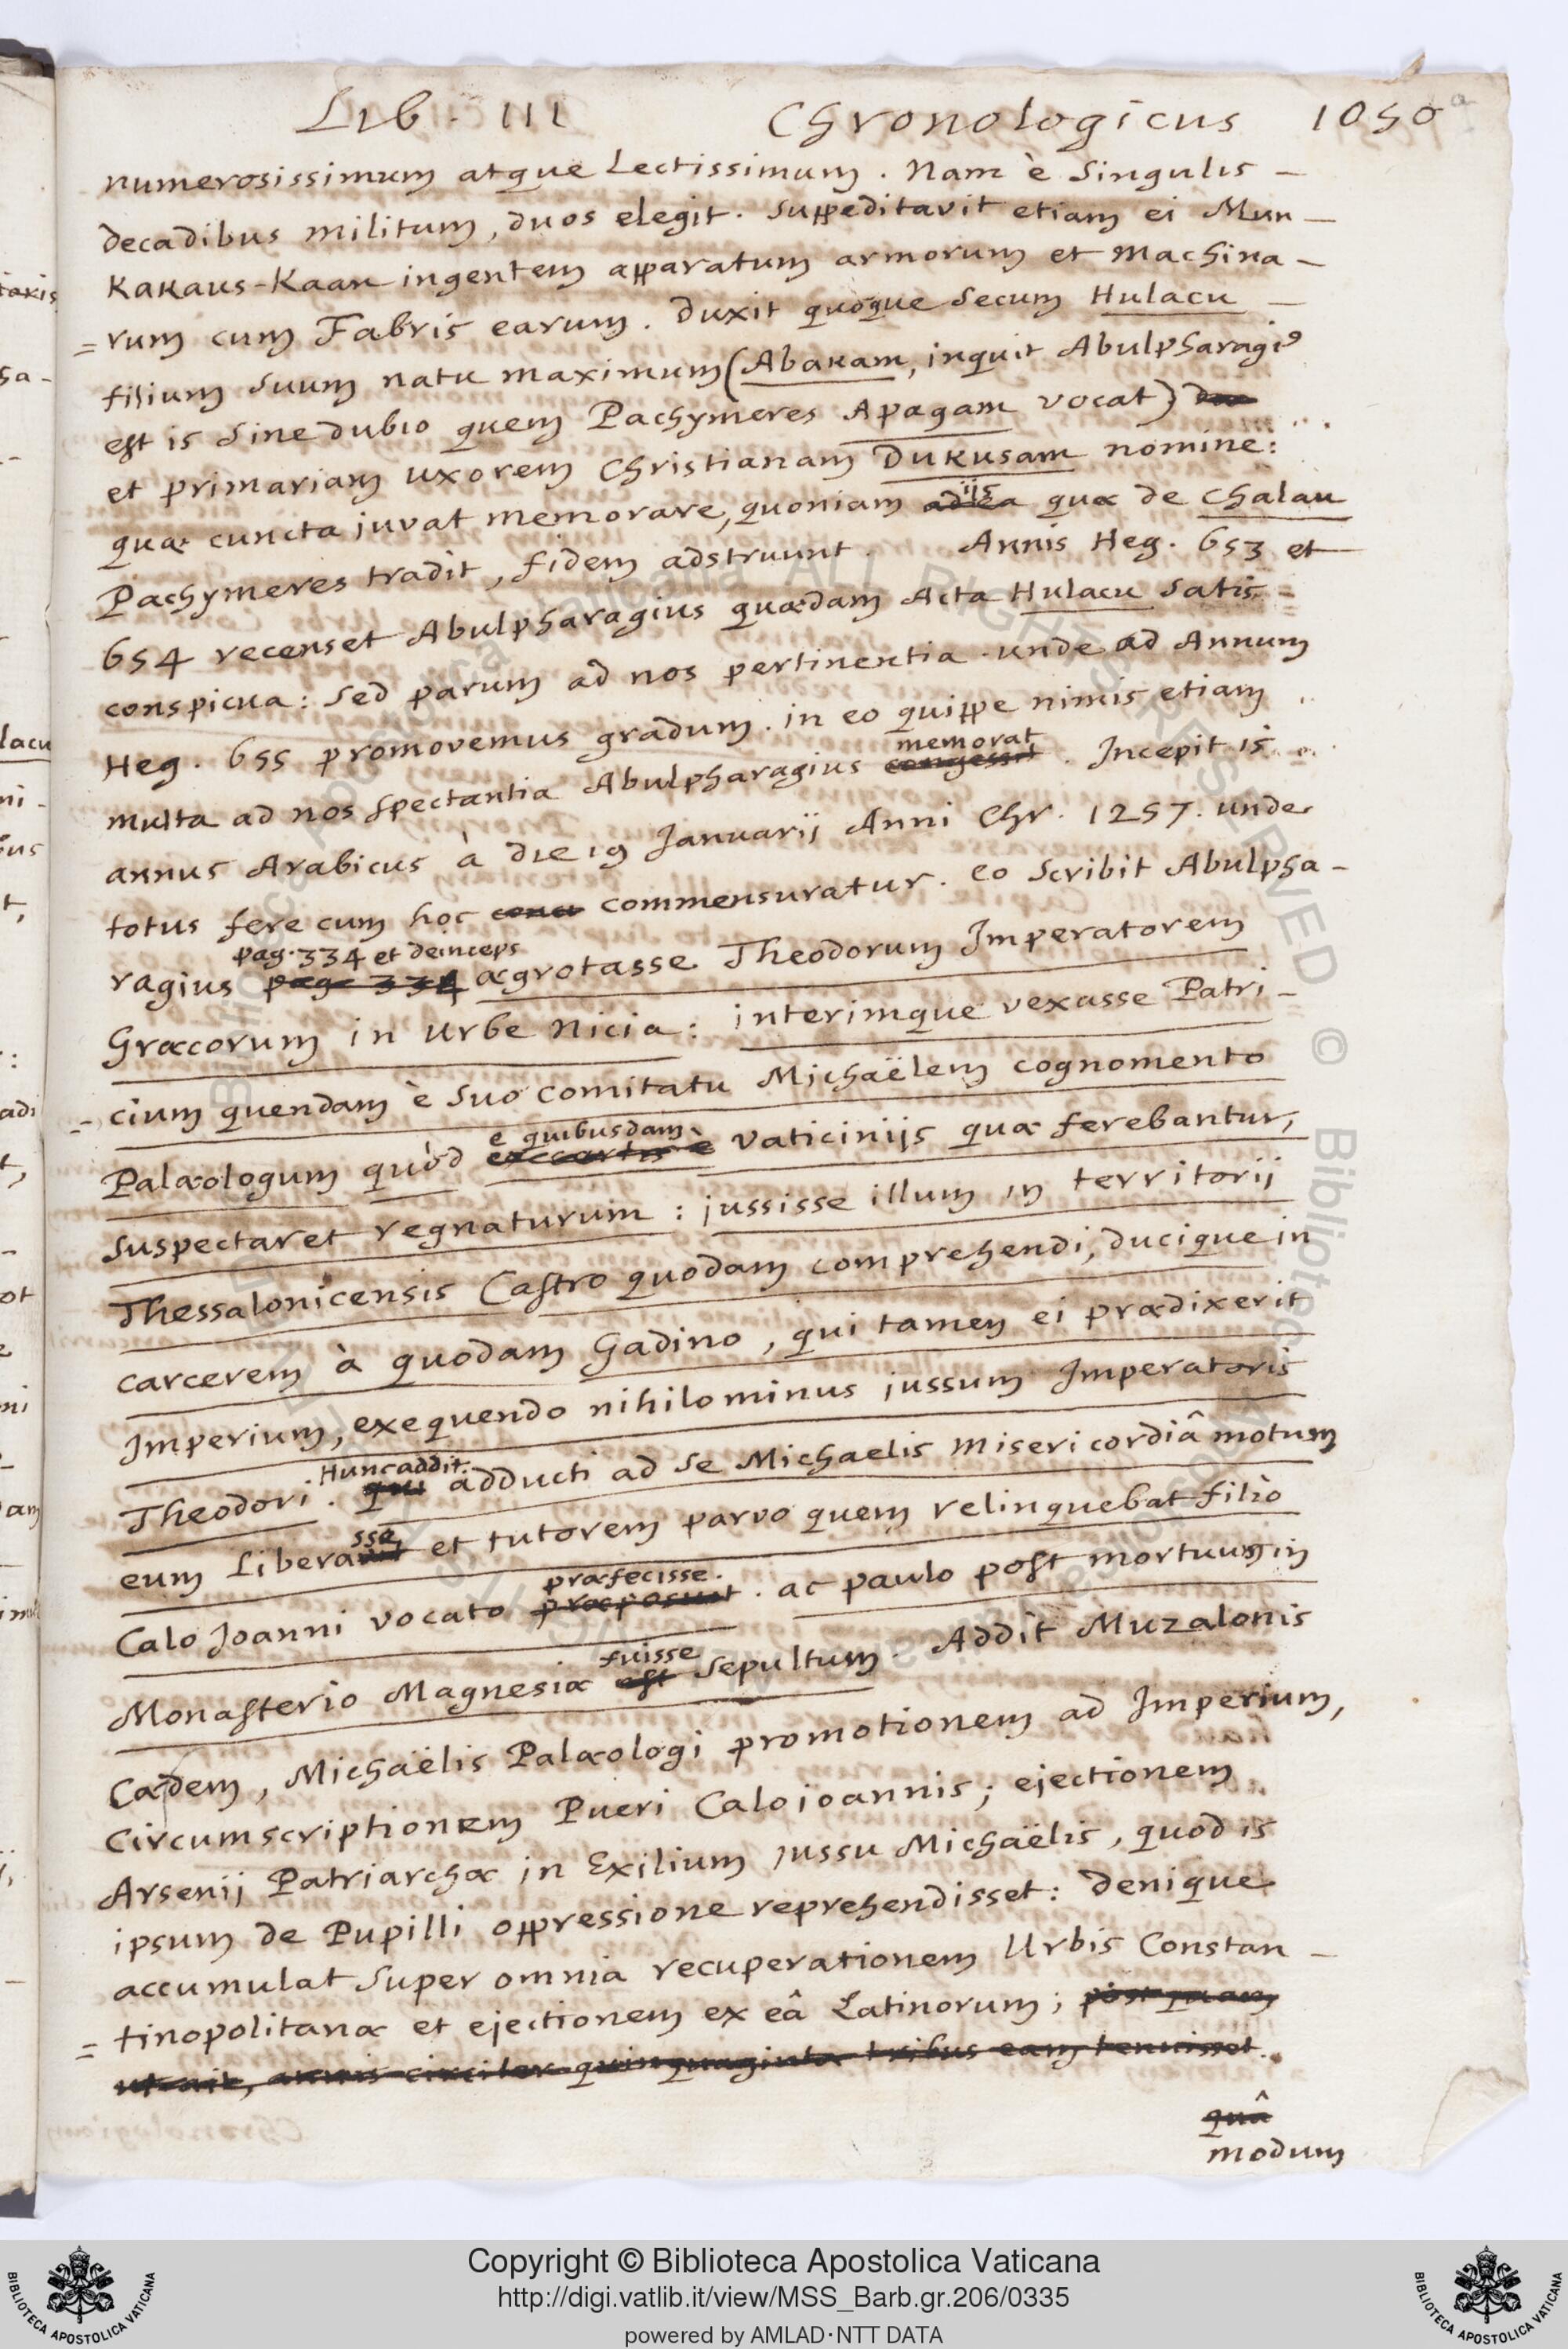 Lib. III Chronologicus 1050
numerosissimum atque Lectissimum. Nam è singulis
decadibus militum, duos elegit. suppeditavit etiam ei Mun-
kakaus-Kaan ingentem apparatum armorum et machina-
=rum cum Fabris earum. duxit quoque secum Hulacu
filium suum natu maximum (Abakam, inquit Abulpharagi9
est is sine dubio quem Pachymeres Apagam vocat)
et primariam uxorem Christianam Dukusam nomine:
quæ cuncta juvat memorare, quoniam iis quæ de Chalau
Pachymeres tradit, fidem adstruunt. Annis Heg. 653 et
654 recenset Abulpharagius quædam Acta Hulacu satis
conspicua: sed parum ad nos pertinentia. unde ad Annum
Heg. 655 promovemus gradum. in eo quippe nimis etiam
multa ad nos spectantia Abulpharagius congessit memorat. Incepit is
annus Arabicus à die 19 Januarij Anni Chr. 1257. unde
totus fere cum hoc commensuratur. eo scribit Abulpha-
pag. 334 et deinceps
ragius pag. 334 ægrotasse Theodorum Imperatorem
Græcorum in Urbe Nicia: interimque vexasse Patri-
=cium quendam è suo comitatu Michaëlem cognomento
e quibusdam
Palæologum quòd vaticinijs quæ ferebantur,
suspectaret regnaturum: jussisse illum in territorij
Thessalonicensis Castro quodam comprehendi, ducique in
carcerem à quodam Gadino, qui tamen ei prædixerit
Imperium, exequendo nihilominus jussum Imperatoris
Hunc addit
Theodori. qui adducti ad se Michaelis misericordiâ motum
sse
eum Libera et tutorem parvo quem relinquebat filio
præfecisse.
Calo Joanni vocato præposuit. ac paulo post mortuum in
fuisse
Monasterio Magnesiæ est sepultum. Addit Muzalonis
Cædem, Michaëlis Palæologi promotionem ad Imperium,
Circumscriptionem Pueri Calojoannis; ejectionem
Arsenij Patriarchæ in Exilium jussu Michaëlis, quod is
ipsum de Pupilli oppressione reprehendisset: denique
accumulat super omnia recuperationem Urbis Constan-
=tinopolitanæ et ejectionem ex eâ Latinorum; postquam
ut ait, annis circiter quinquaginta tribus eam tenuisset.
quâ
modum
Copyright © Biblioteca Apostolica Vaticana
http://digi.vatlib.it/view/MSS_Barb.gr.206/0335
powered by AMLAD·NTT DATA
BIBLIOTECA APOSTOLICA VATICANA
BIBLIOTECA APOSTOLICA VATICANA